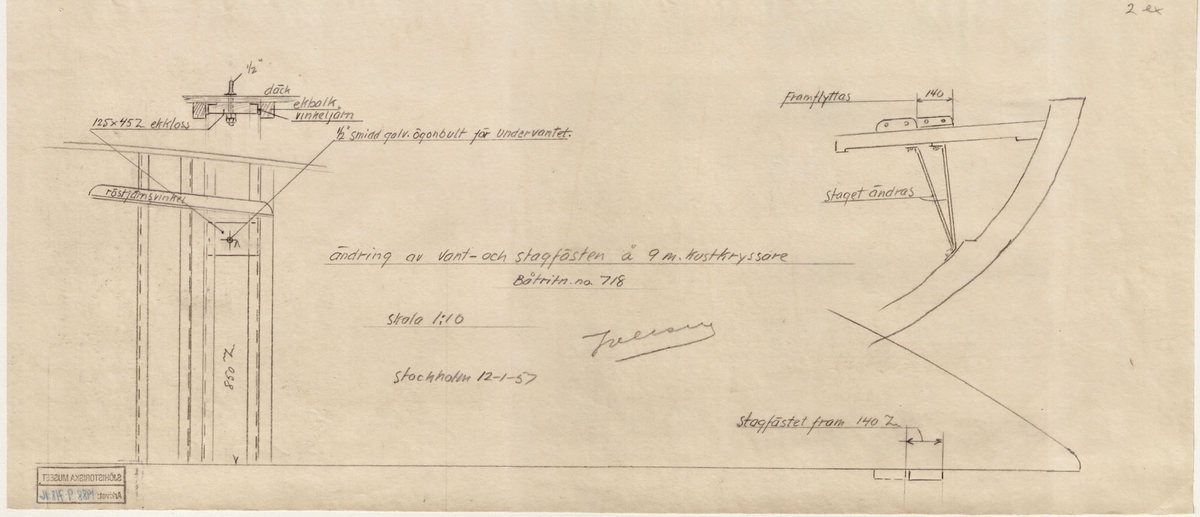 2 ex
1/2"
däck
ekbalk,
vinkeljärn
125x45 Z ekkloss
1/2" smidd galv. ögonbult för undervantet.
röstjärnsvinkel
850 Z
Framflyttas
140
staget ändras
ändring av vant- och stagfästen å 9 m. kustkryssare
Båtritn. no. 718
Skala 1:10
Stockholm 12-1-57
Stagfästet fram 140 Z
SJÖHISTORISKA MUSEET